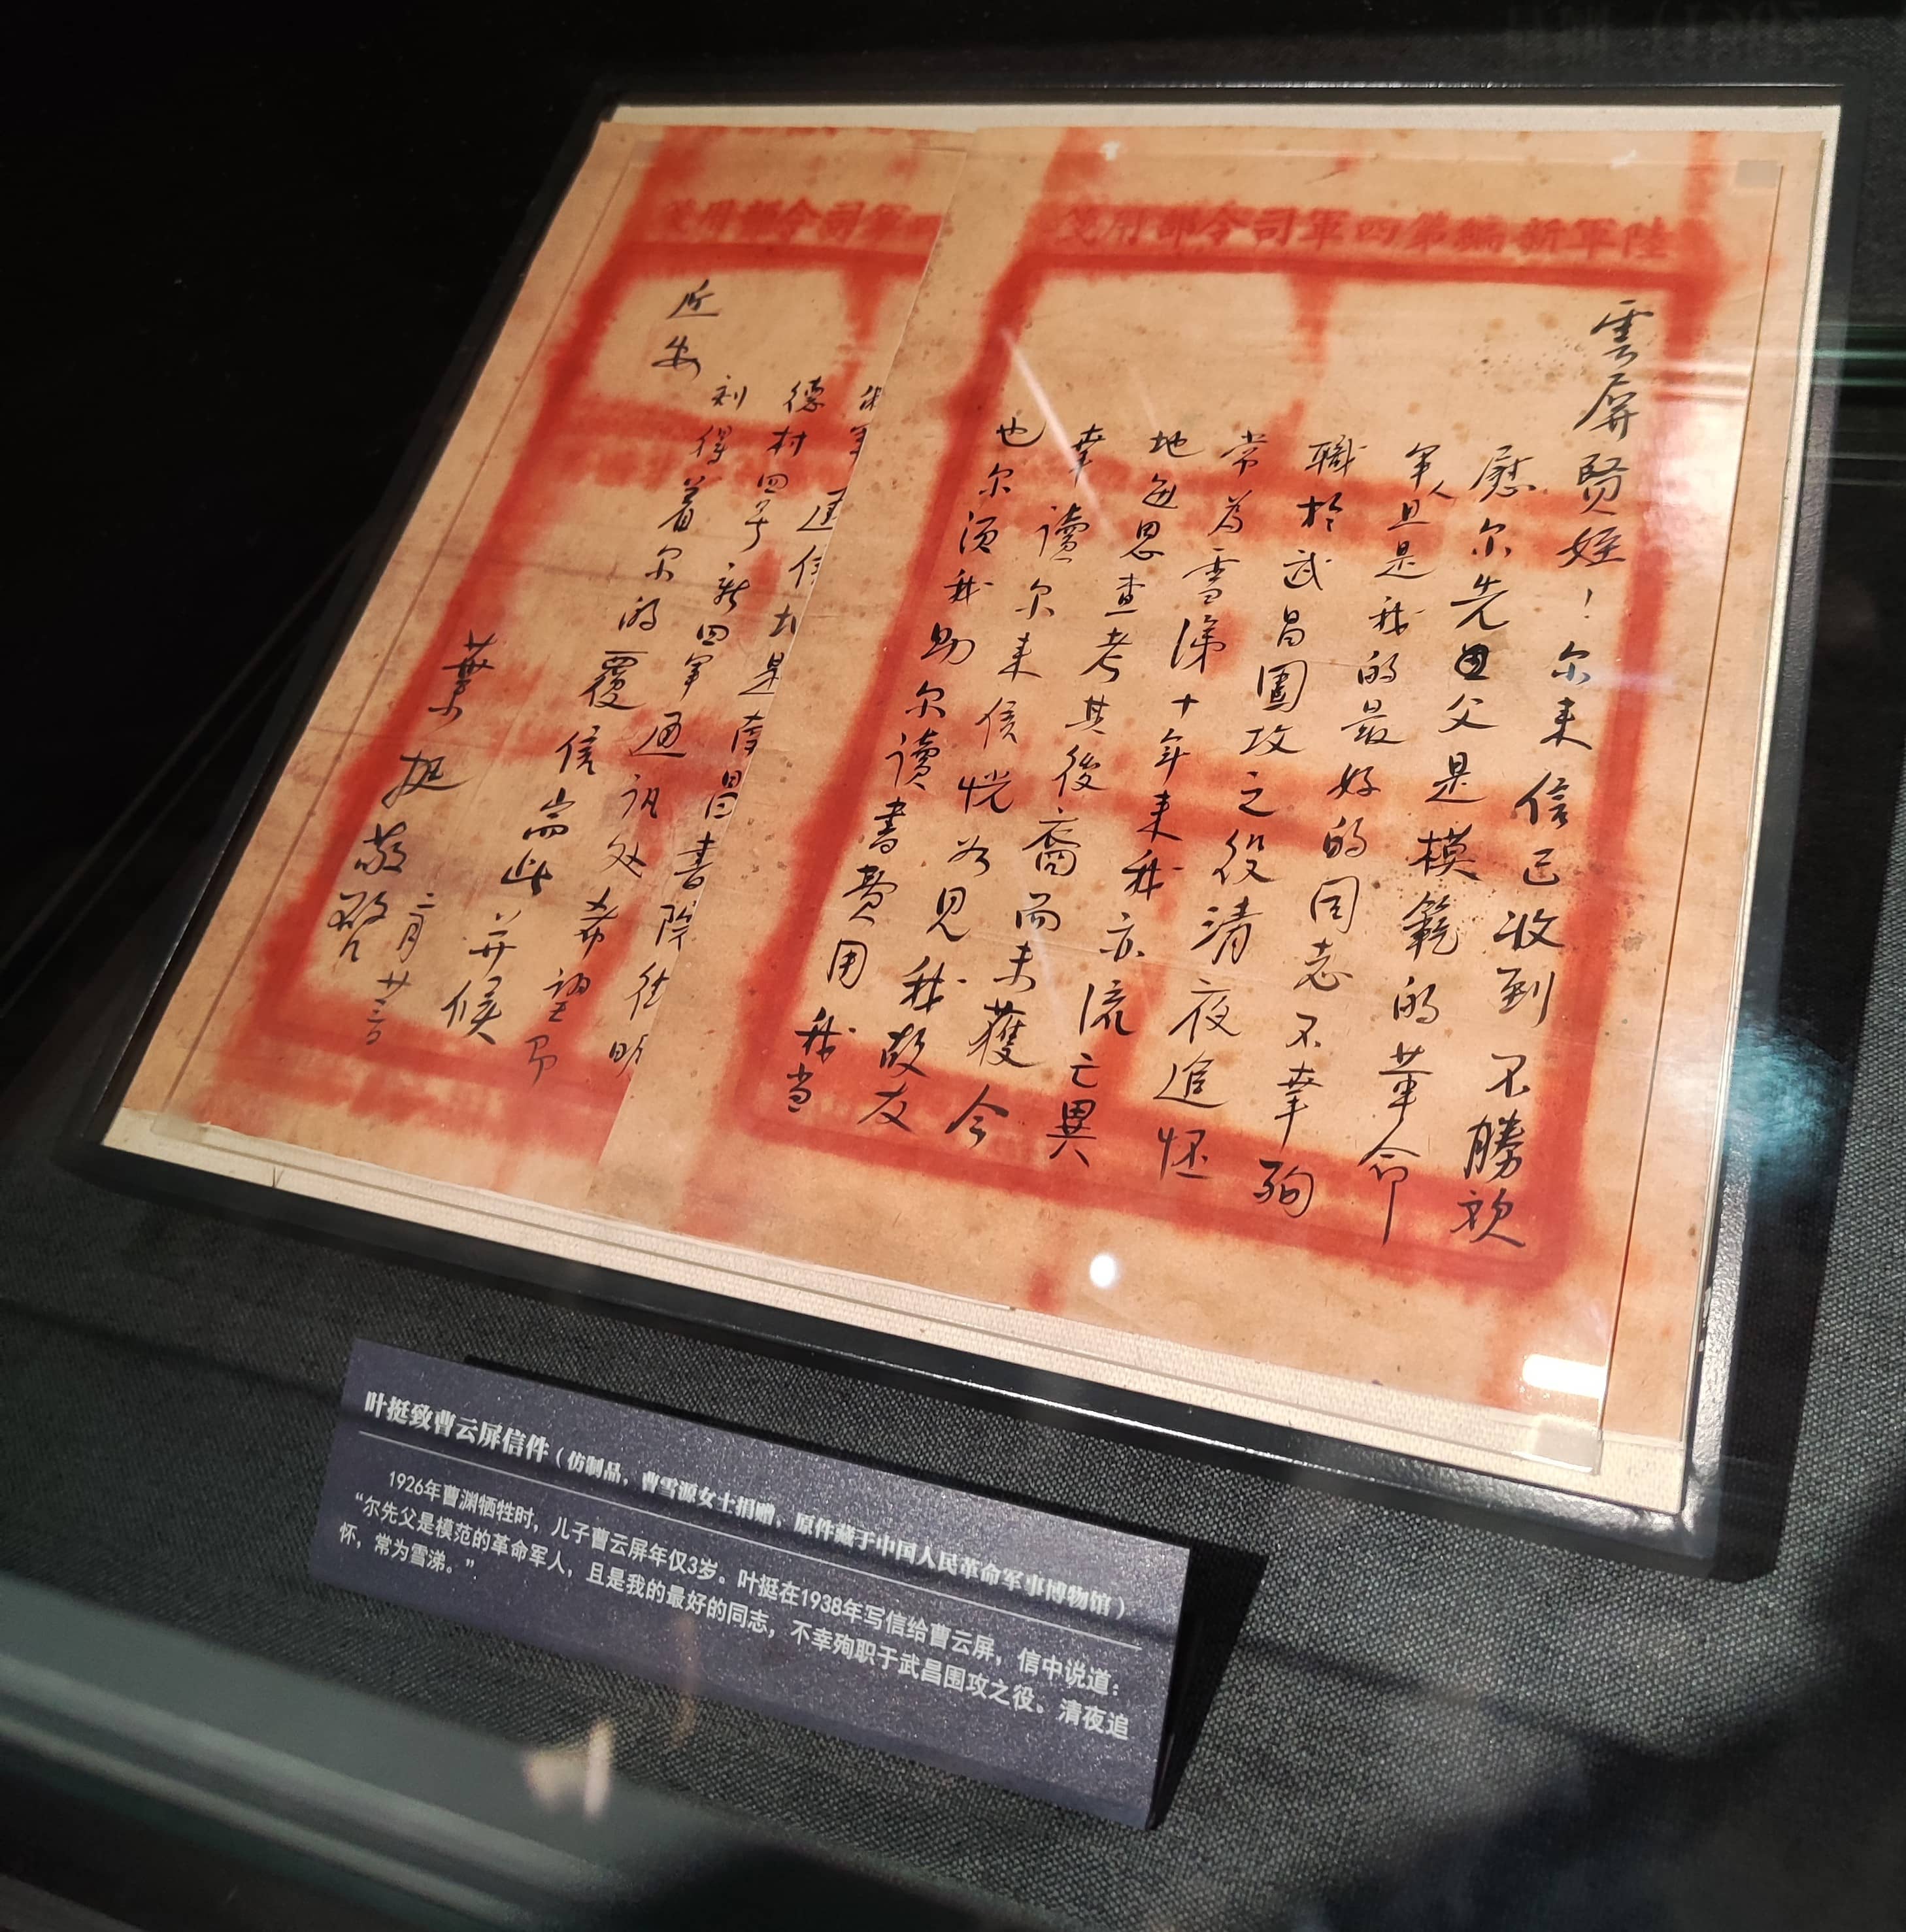 陸軍新編第四軍司令部用箋
雲屏贤姪！尔来信已收到不勝欢
慰尔先父是模範的革命
軍人且是我的最好的同志不幸殉
職於武昌圍攻之役清夜追怀
常為雪涕十年来我亦流亡異
地每思查考其後裔而未獲今
幸讀尔来信恍如見我故友
也尔須我助尔讀書費用我当
軍司令部用箋
軍通信是南昌書院街明
德村四号新四軍通讯处希望即
刻得着尔的覆信耑此并候
近安
葉挺敬啓
二月廿
叶挺致曹云屏信件（仿制品，曹雪源女士捐赠、原件藏于中国人民革命军事博物馆）
1926年曹渊牺牲时，儿子曹云屏年仅3岁。叶挺在1938年写信给曹云屏，信中说道：
“尔先父是模范的革命军人，且是我的最好的同志，不幸殉职于武昌围攻之役。清夜追
怀，常为雪涕。”